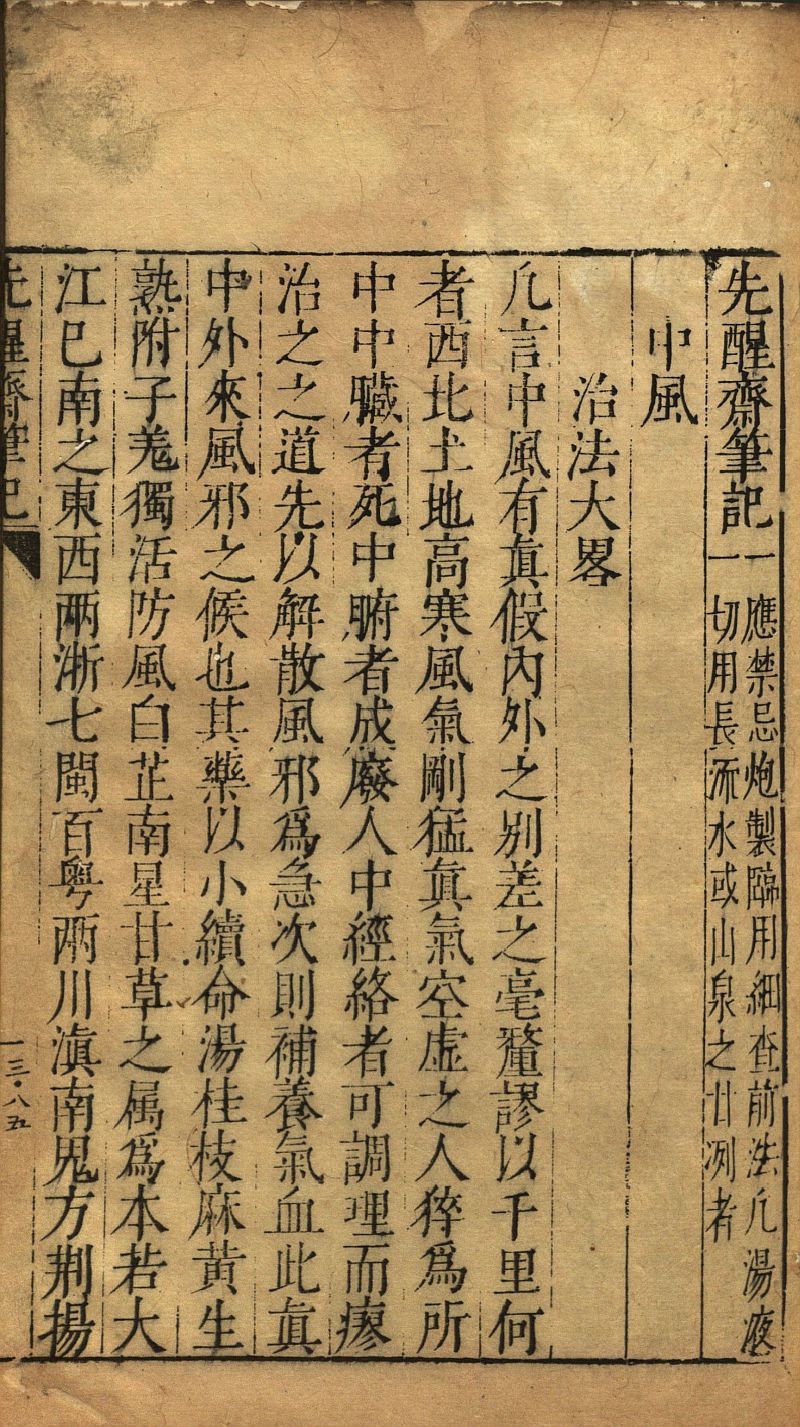 先醒齋筆記
一應禁忌炮製臨用細查前法凢湯液
一切用長流水或山泉之甘冽者
中風
治法大畧
凢言中風有眞假內外之别差之毫釐謬以千里何
者西北土地高寒風氣剛猛眞氣空虛之人猝爲所
中中臟者死中腑者成廢人中經絡者可調理而瘳
治之之道先以解散風邪爲急次則補養氣血此眞
中外來風邪之候也其藥以小續命湯桂枝麻黃生
熟附子羗獨活防風白芷南星甘草之属爲本若大
江巳南之東西兩浙七閩百粤兩川滇南鬼方荆揚
先醒齋筆記
一三·八五